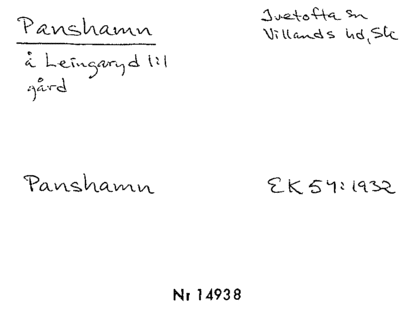 Panshamn
Ivetofta sn
Villands hd, Sk
å Leingaryd 1:1
gård
Panshamn
EK 54:1932
Nr 14938